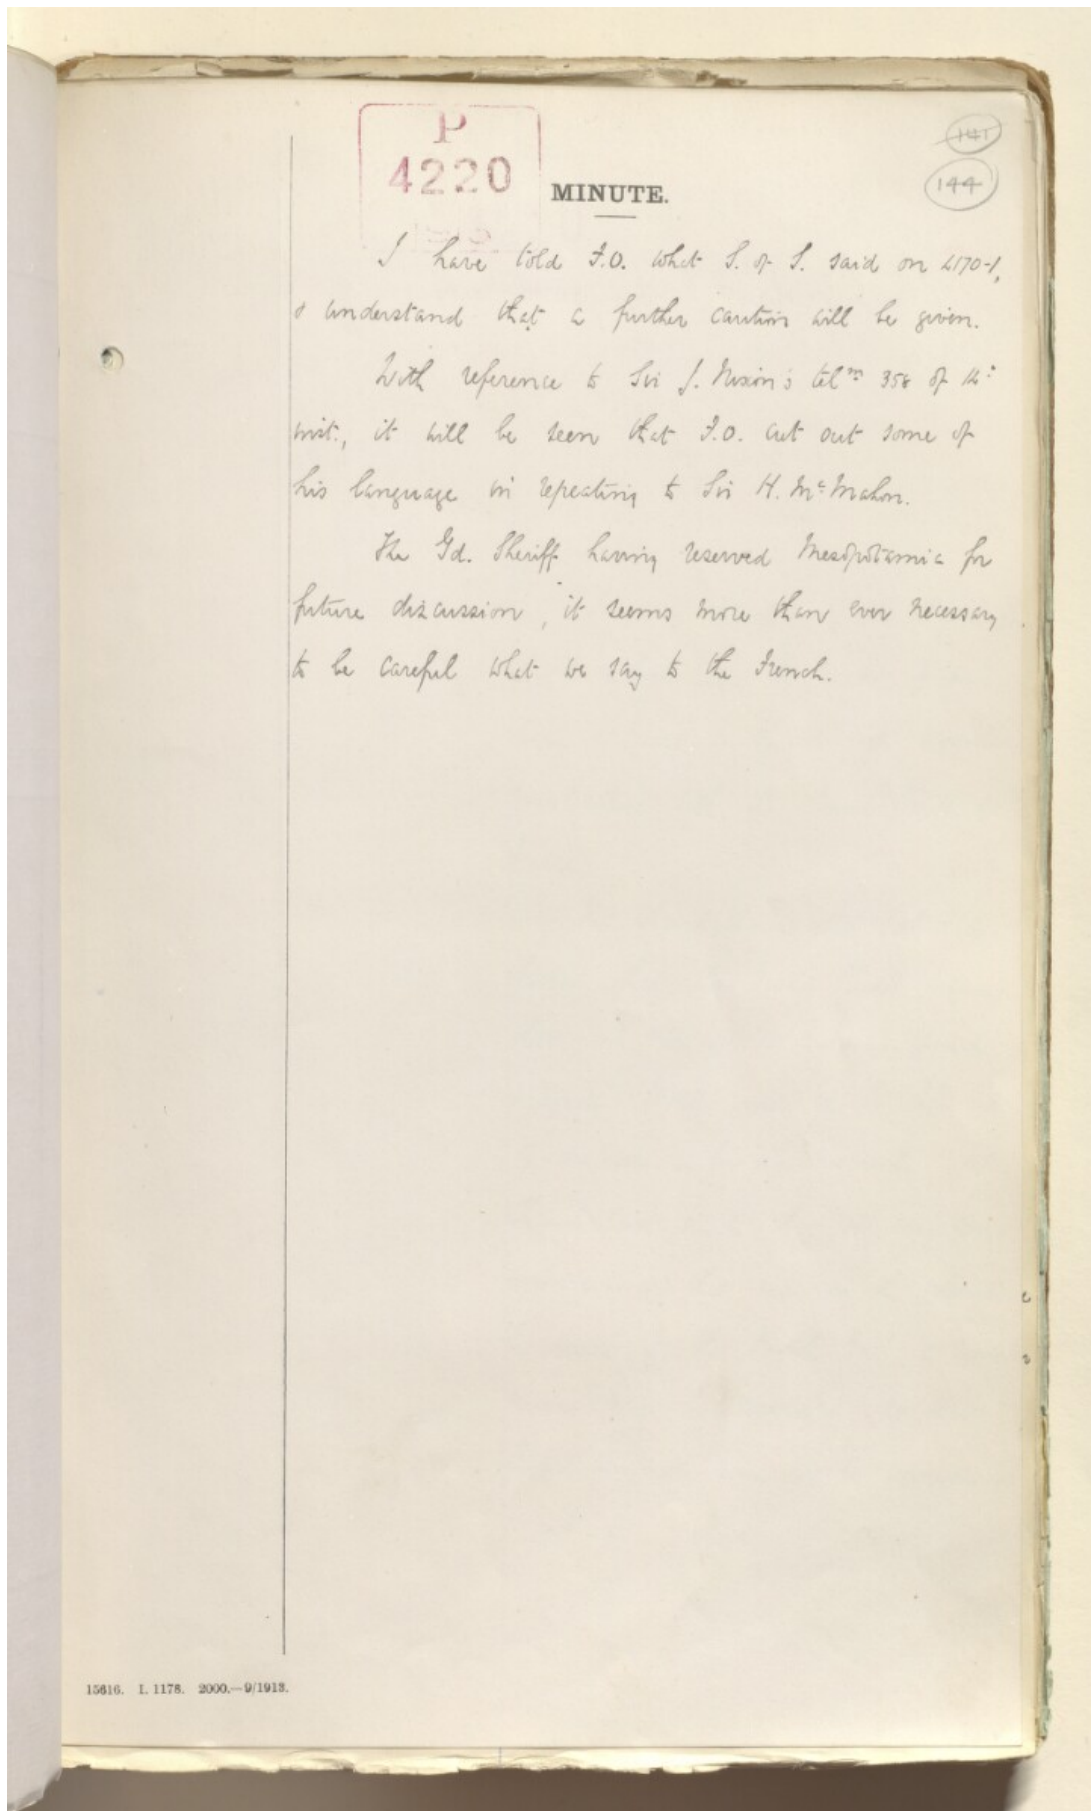 P
4220
141
144
MINUTE.
I have told F.O. what S. of S. said on 4170-1,
& understand that a further caution will be given.
With reference to Sir J. Nixon's telm 358 of 14:
inst., it will be seen that F.O. cut out some of
his language in repeating to Sir H. McMahon.
The Gd. Sheriff having reserved Mesopotamia for
future discussion, it seems more than ever necessary
to be careful what we say to the French.
15616. I. 1178. 2000.—9/1913.